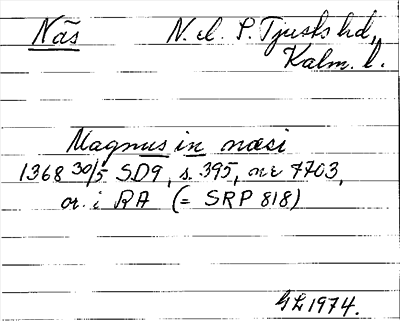 Näs N. el. S. Tjusts hd,
Kalm. l.
Magnus in næsi
1368 30/5 SD9, s. 395, nr 7703,
or. i RA (= SRP 818)
GL 1974.